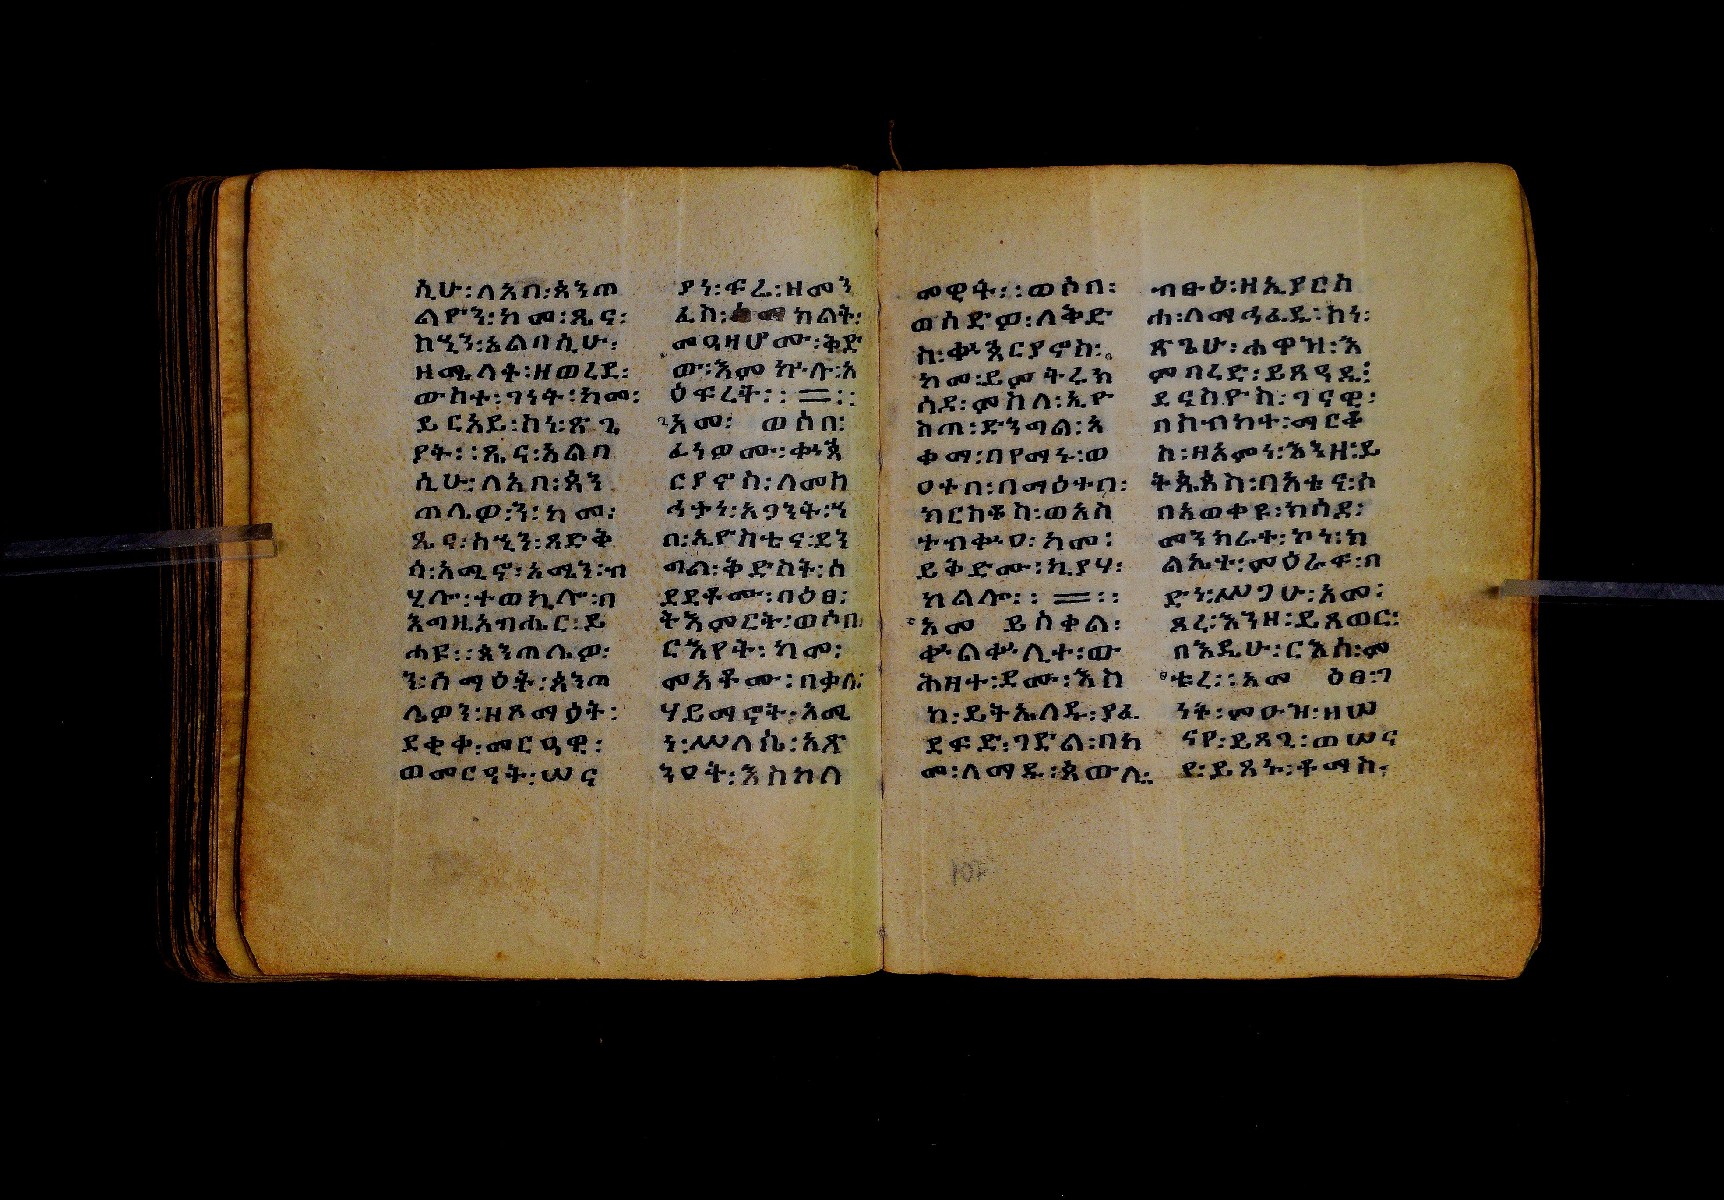 ሲሁ፡ለአቡ፡ጰንጠ
ልዮን፡ከመ፡ጺና፡
ከሂን፡አልባሲሁ፡
ዘሜላት፡ዘወረደ፡
ውስተ፡ገነት፡ከመ፡
ይርአይ፡ስነ፡ጽጌ
ያት፡፡ጼና፡አልባ
ሲሁ፡ለአቡ፡ጰን
ጠሌዎ፡ን፡ከመ፡
ጼና፡ስሂን፡ጸድቅ
ሳ፡አሚኖ፡አሚን፡ብ
ሂሎ፡ተወኪሎ፡በ
እግዚአብሔር፡ይ
ሐዩ፡፡ጰንጠሌዎ፡
ን፡ሰማዕት፡ጰንጠ
ሌዎን፡ዘጾማዕት፡
ደቂቀ፡መርዓዊ፡
ወመርዓት፡ሠና
ያነ፡ፍሬ፡ዘመን
ፈስ፡ ክልት፡
መዓዛሆሙ፡ቅድ
ው፡እምኵሉ፡አ
ዕፍረት፡፡
አመ፡ ወሰበ፡
ፈነዎሙ፡ቍጵ
ርያኖስ፡ለመስ
ሓትነ፡አጋንት፡ኀ
በ፡ኢዮስቴና፡ደን
ግል፡ቅድስት፡ሰ
ደደቶሙ፡በዕፀ፡
ትእምርት፡ወሶበ
ርእየት፡ከመ፡
መአቶሙ፡በቃለ፡
ሃይማኖት፡አሚ
ነ፡ሥላሴ፡አጽ
ንዐት፡እስከለ
መዊት፡፡ወሶበ፡
ወሰድዎ፡ለቅድ
ስ፡ቍጵርያኖስ፡
ከመ፡ይምትሩክ
ሳደ፡ምስለ፡ኢዮ
ስጠ፡ድንግል፡አ
ቀማ፡በየማኑ፡ወ
ዐተበ፡በማዕተብ፡
ክርስቶስ፡ወአስ
ተብቍዐ፡ከመ፡
ይቅድሙ፡ኪያሃ፡
ከልሎ፡፡
አመ ይሰቀል፡
ቍልቍሊተ፡ው
ሕዘተ፡ደሙ፡እስ
ከ፡ይትኤለዱ፡ያፈ
ደፍድ፡ገድል፡በከ
መ፡ለማዱ፡ጳውሊ
ብፁዕ፡ዘኢያርስ
ሐ፡ለማኅፈዱ፡ስነ፡
ጽጌሁ፡ሐዋዝ፡እ
ምበረድ፡ይጸዓዱ፡
ደናስዮስ፡ገናዊ፡
በስብከተ፡ማርቆ
ስ፡ዘአምነ፡እንዘ፡ይ
ትጴጰስ፡በአቴና፡ሶ
በአወቀዩ፡ክሳደ፡
መንክራተ፡ኮነ፡ክ
ልኤተ፡ምዕራፍ፡በ
ድነ፡ሥጋሁ፡አመ፡
ጾረ፡እንዘ፡ይጸወር፡
በእዴሁ፡ርእሰ፡መ
ቱረ፡፡አመ ዕፀ፡ገ
ነት፡ምዑዝ፡ዘሠ
ናየ፡ይጼጊ፡ወሠና
የ፡ይጼኑ፡ቶማስ፡